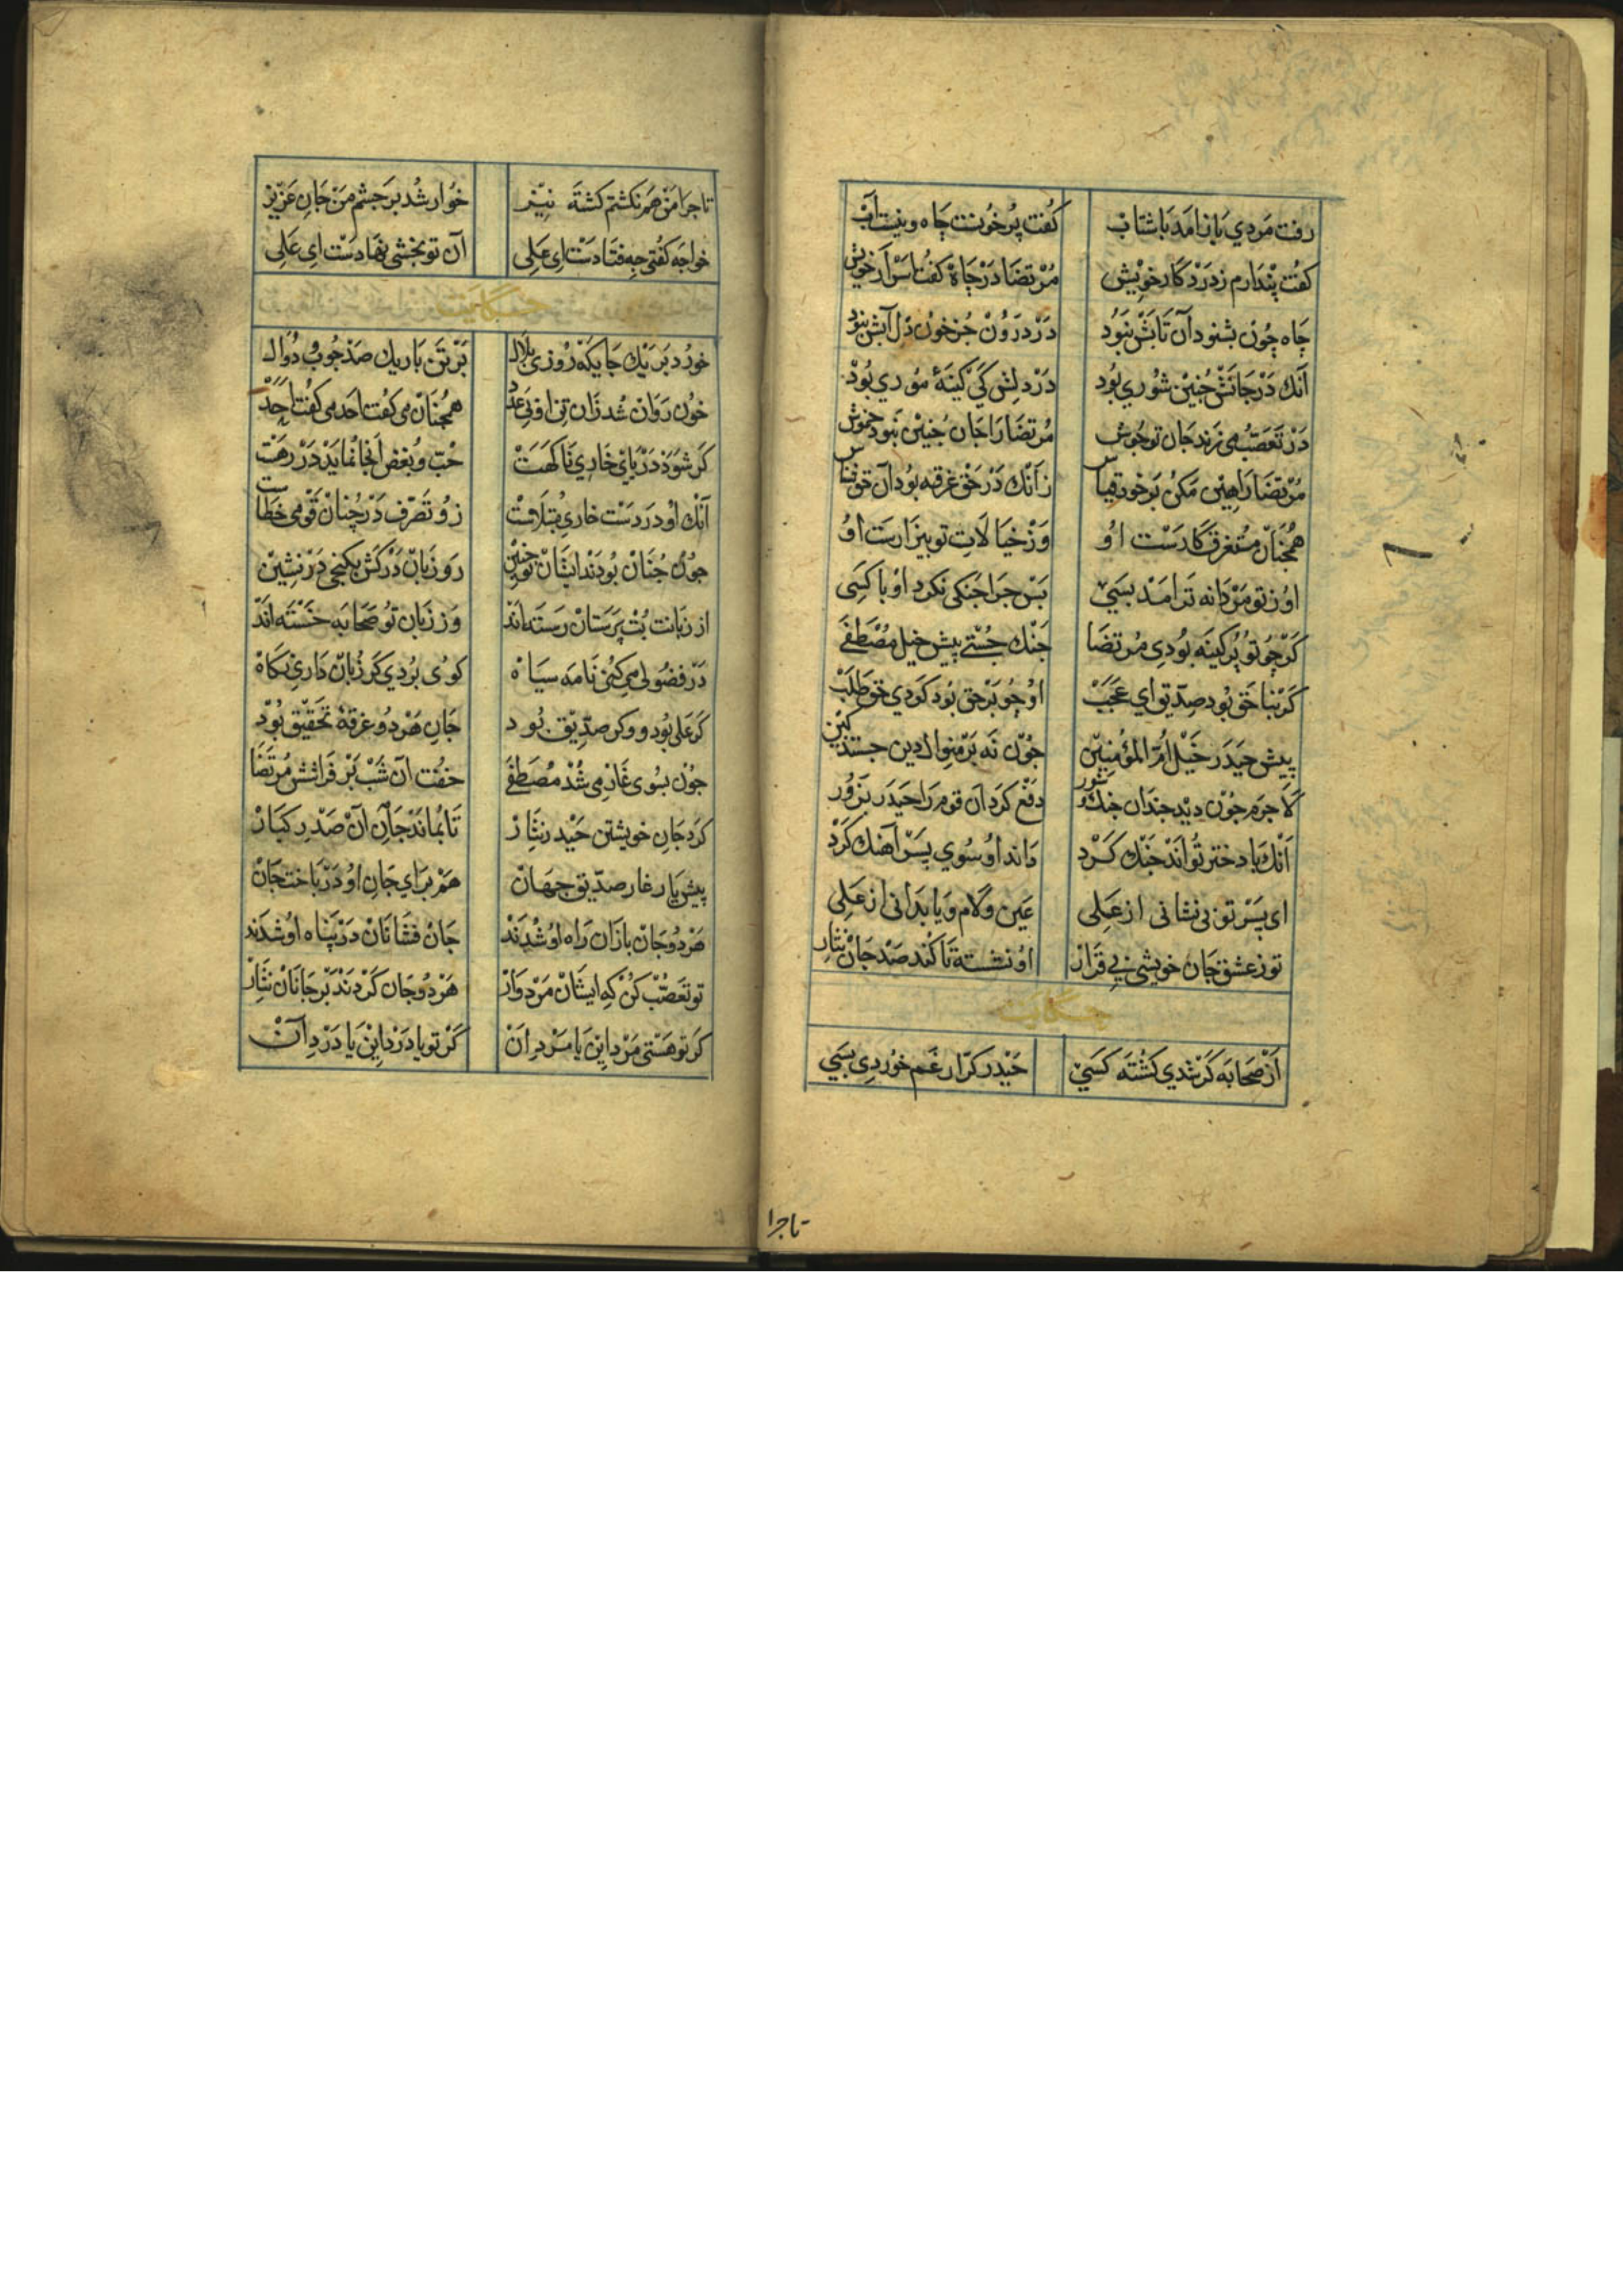 رفت مردي باز آمد باشتاب كفت پر خونست چاه و نيست آب
كفت پندارم ز درد كار خويش مرتضا در چاه كفت اسرار خويش
چاه چون بشنود آن تابش نبود در درون جز خون دل آبش نبود
آنك در جانش چنين شوري بود در دلش كي كينهٔ موري بود
در تعصب مي زند جان تو جوش مرتضا را جان چنين نبود خموش
مرتضا را همين مكن بر خود قياس زآنك در حق غرقه بود آن حق شناس
همچنان مستغرق كارست او وز خيالات تو بيزارست او
او ز تو مردانه تر آمد بسي پس چرا جنكي نكرد او با كسي
كر چو تو پر كينه بودي مرتضا جنك جستي پيش خيل مصطفي
كر بنا حق بود صديق اي عجب او چو بر حق بود كردي حق طلب
پيش حيدر خيل ام المؤمنين چون نه بر منوال دين جستند كين
لاجرم چون ديد چندان جنك و شور دفع كرد آن قوم را حيدر بزور
آنك با دختر تواند جنك كرد داند او سوي پسر آهنك كرد
اي پسر تو بي نشاني از علي عين و لام و يا بداني از علي
تو ز عشق جان خويشي بي قرار او نشسته تا كند صد جان نثار
حكايت
از صحابه كر شدي كشته كسي حيدر كرار غم خوردي بسي
تا چرا
تا چرا من هم نكشتم كشته نيز خوار شد بر چشم من جان عزيز
خواجه كفتي چه فتادست اي علي آن تو بخشي نهادست اي علي
حكايت
خورد بر يك جايكه روزي بلال بر تن باريك صد چوب و دوال
خون روان شد زان تن او بي عدد همچنان مي كفت احد مي كفت احد
كر شود در پاي خاري ناكهت حب و بغض آنجا نمايد در رهت
آنك او در دست خاري مبتلاست زو تصرف در چنان قومي خطاست
چون چنان بودند ايشان تو چنين رو زبان دركش بكنجي در نشين
از زبانت بت پرستان رسته اند وز زبان تو صحابه خسته اند
در فضولي مي كني نامه سياه كوي بردي كر زبان داري نكاه
كر علي بود و وكر صديق بود جان هر دو غرقهٔ تحقيق بود
چون بسوي غار مي شد مصطفي خفت آن شب بر فراشش مرتضا
كرد جان خويشتن حيدر نثار تا بماند جان آن صدر كبار
پيش يار غار صديق جهان هم براي جان او در باخت جان
هر دو جان بازان راه او شدند جان فشانان در پناه او شدند
تو تعصب كن كه ايشان مردوار هر دو جان كردند بر جانان نثار
كر تو هستي مرد اين يا مرد آن كر تو يا درد اين يا درد آن